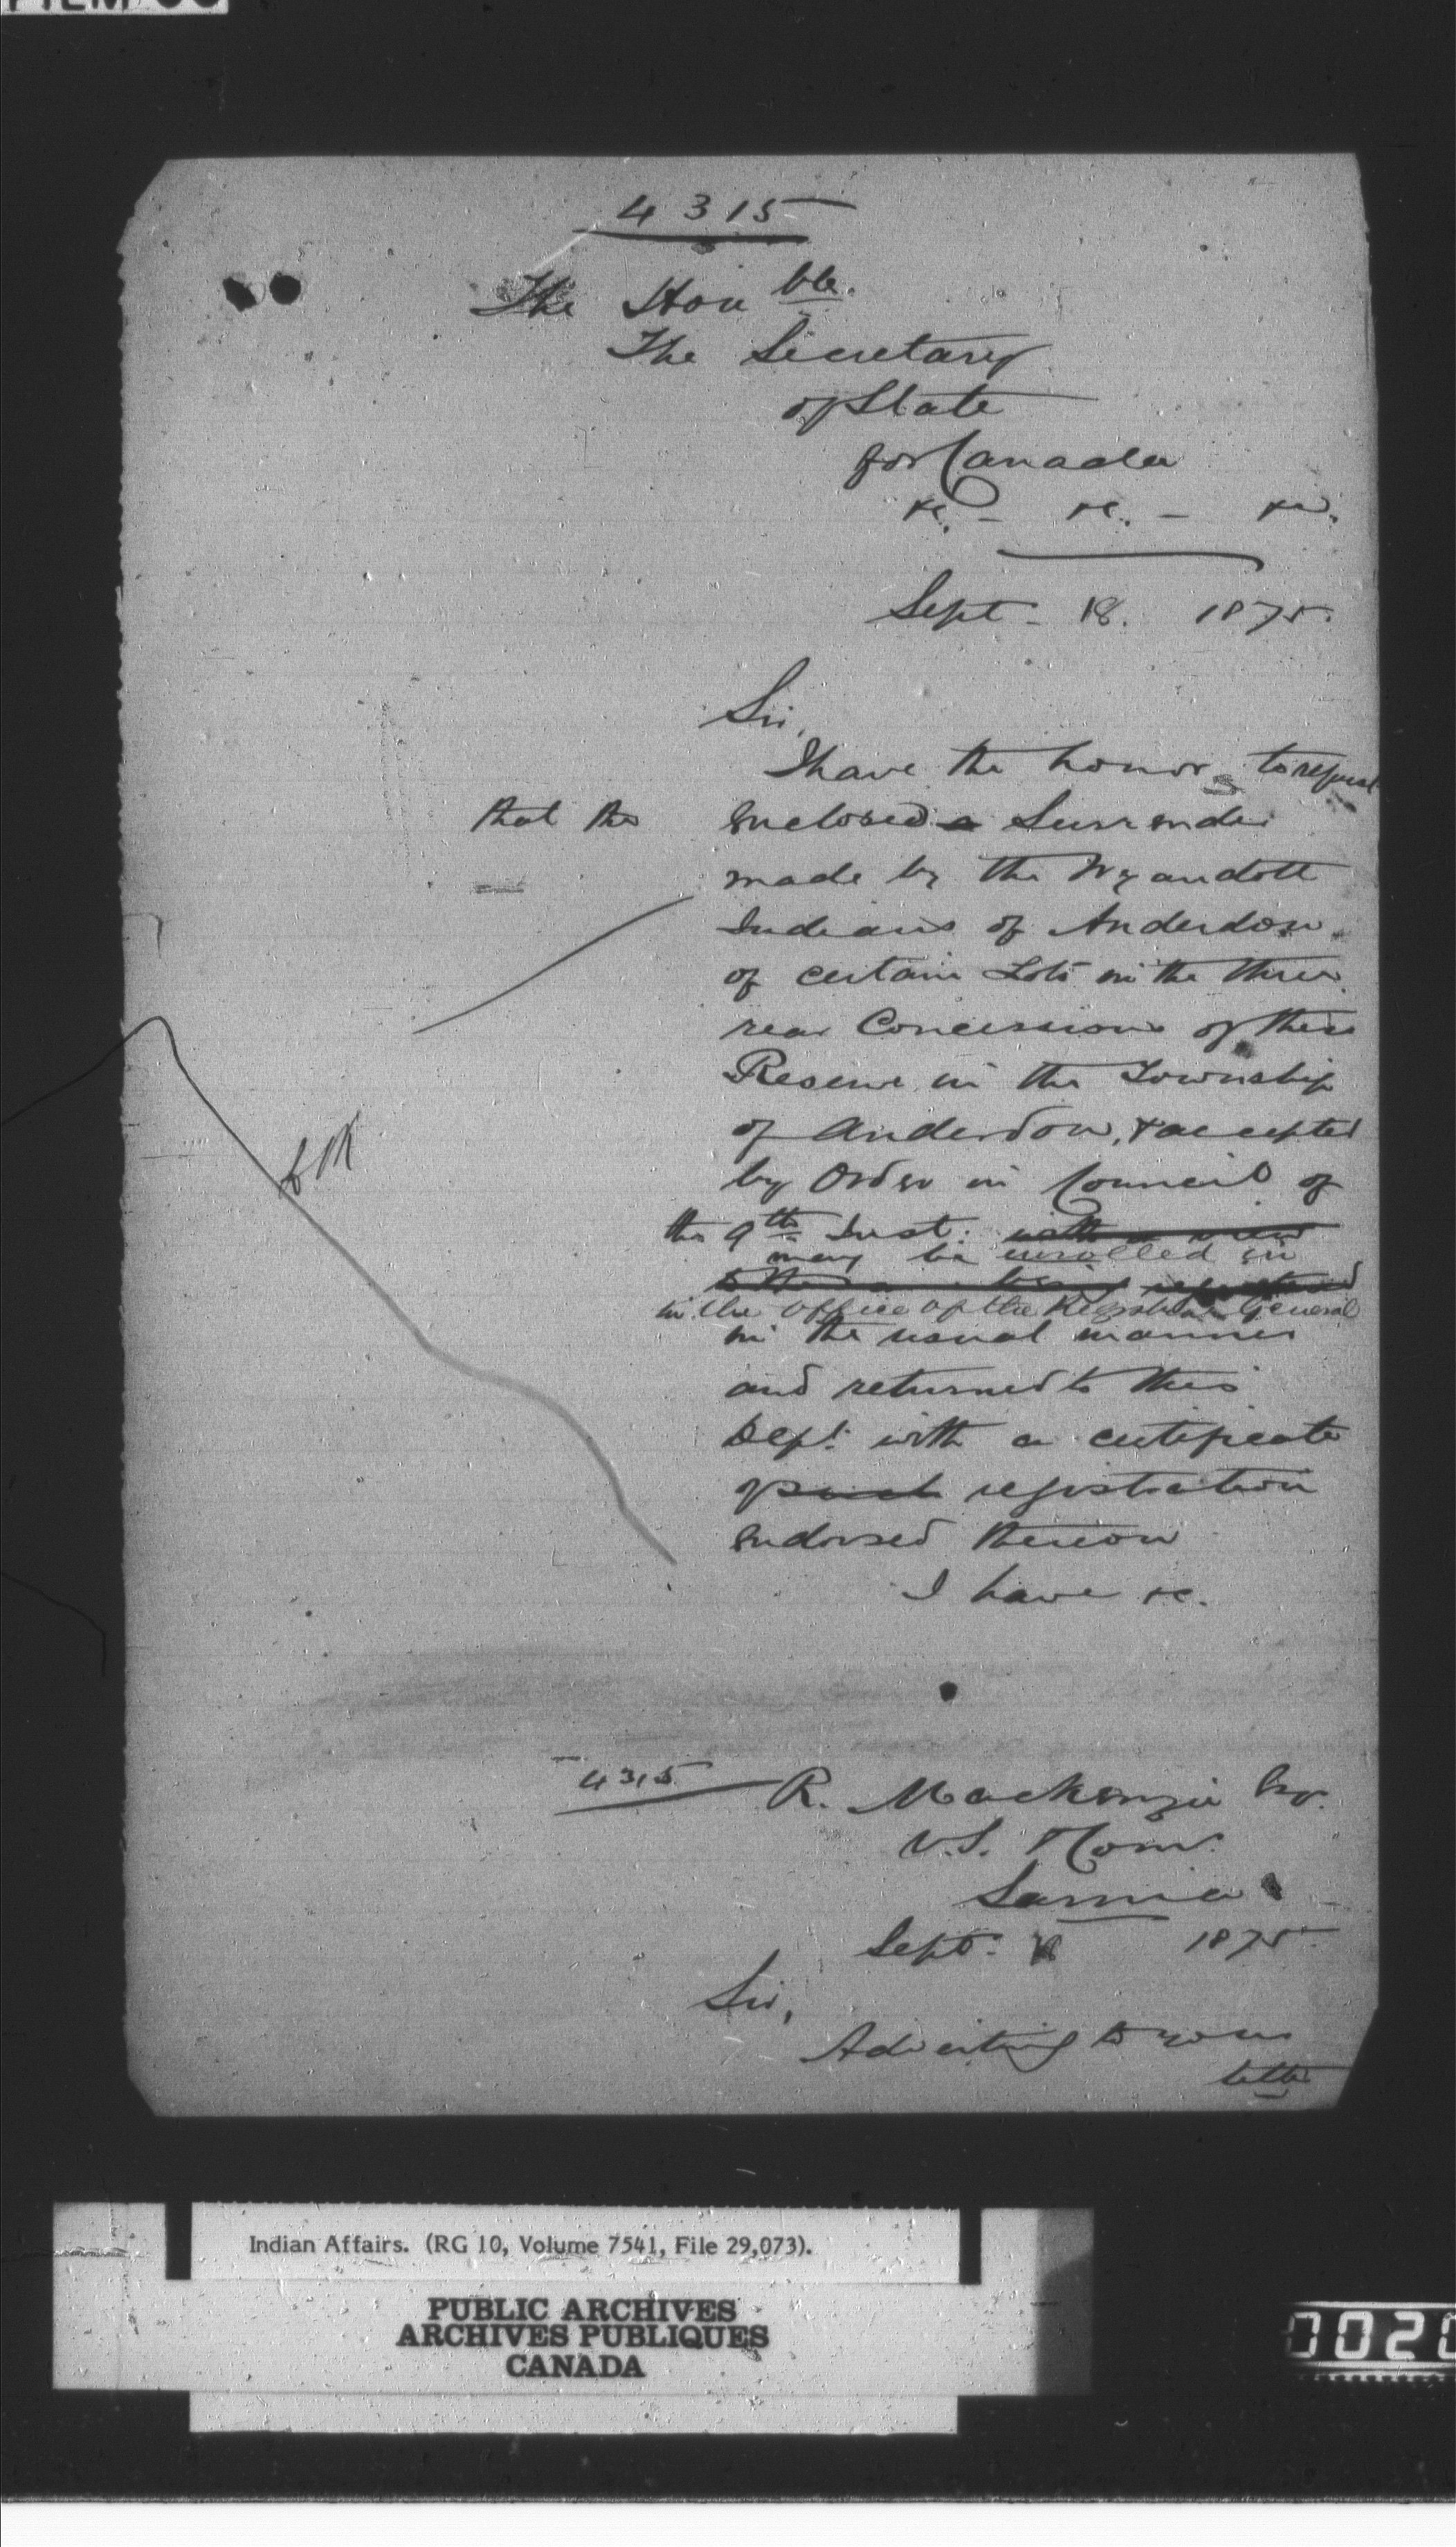 4315
The Honble.
The Secretary
of State
for Canada
&c. - &c. - &c.
Sept - 18. 1875.
Sir,
I have the honor to request
that the enclosed a Surrender
made by the Wyandott
Indians of Anderdon
of certain Lots in the three
rear Concessions of their
Reserve in the Township
of Anderdon, & accepted
by Order in Council of
the 9th Inst: with a view
may be enrolled in
in the office of the Registrar General
in the usual manner
and returned to this
Dept. with a certificate
of such registration
endorsed thereon
I have &c.
4315 R. Mackenzie Esq.
V.S. & Comr.
Sarnia
Sept. 18 1875
Sir,
Adverting to your
letter
Indian Affairs. (RG 10, Volume 7541, File 29,073).
PUBLIC ARCHIVES
ARCHIVES PUBLIQUES
CANADA